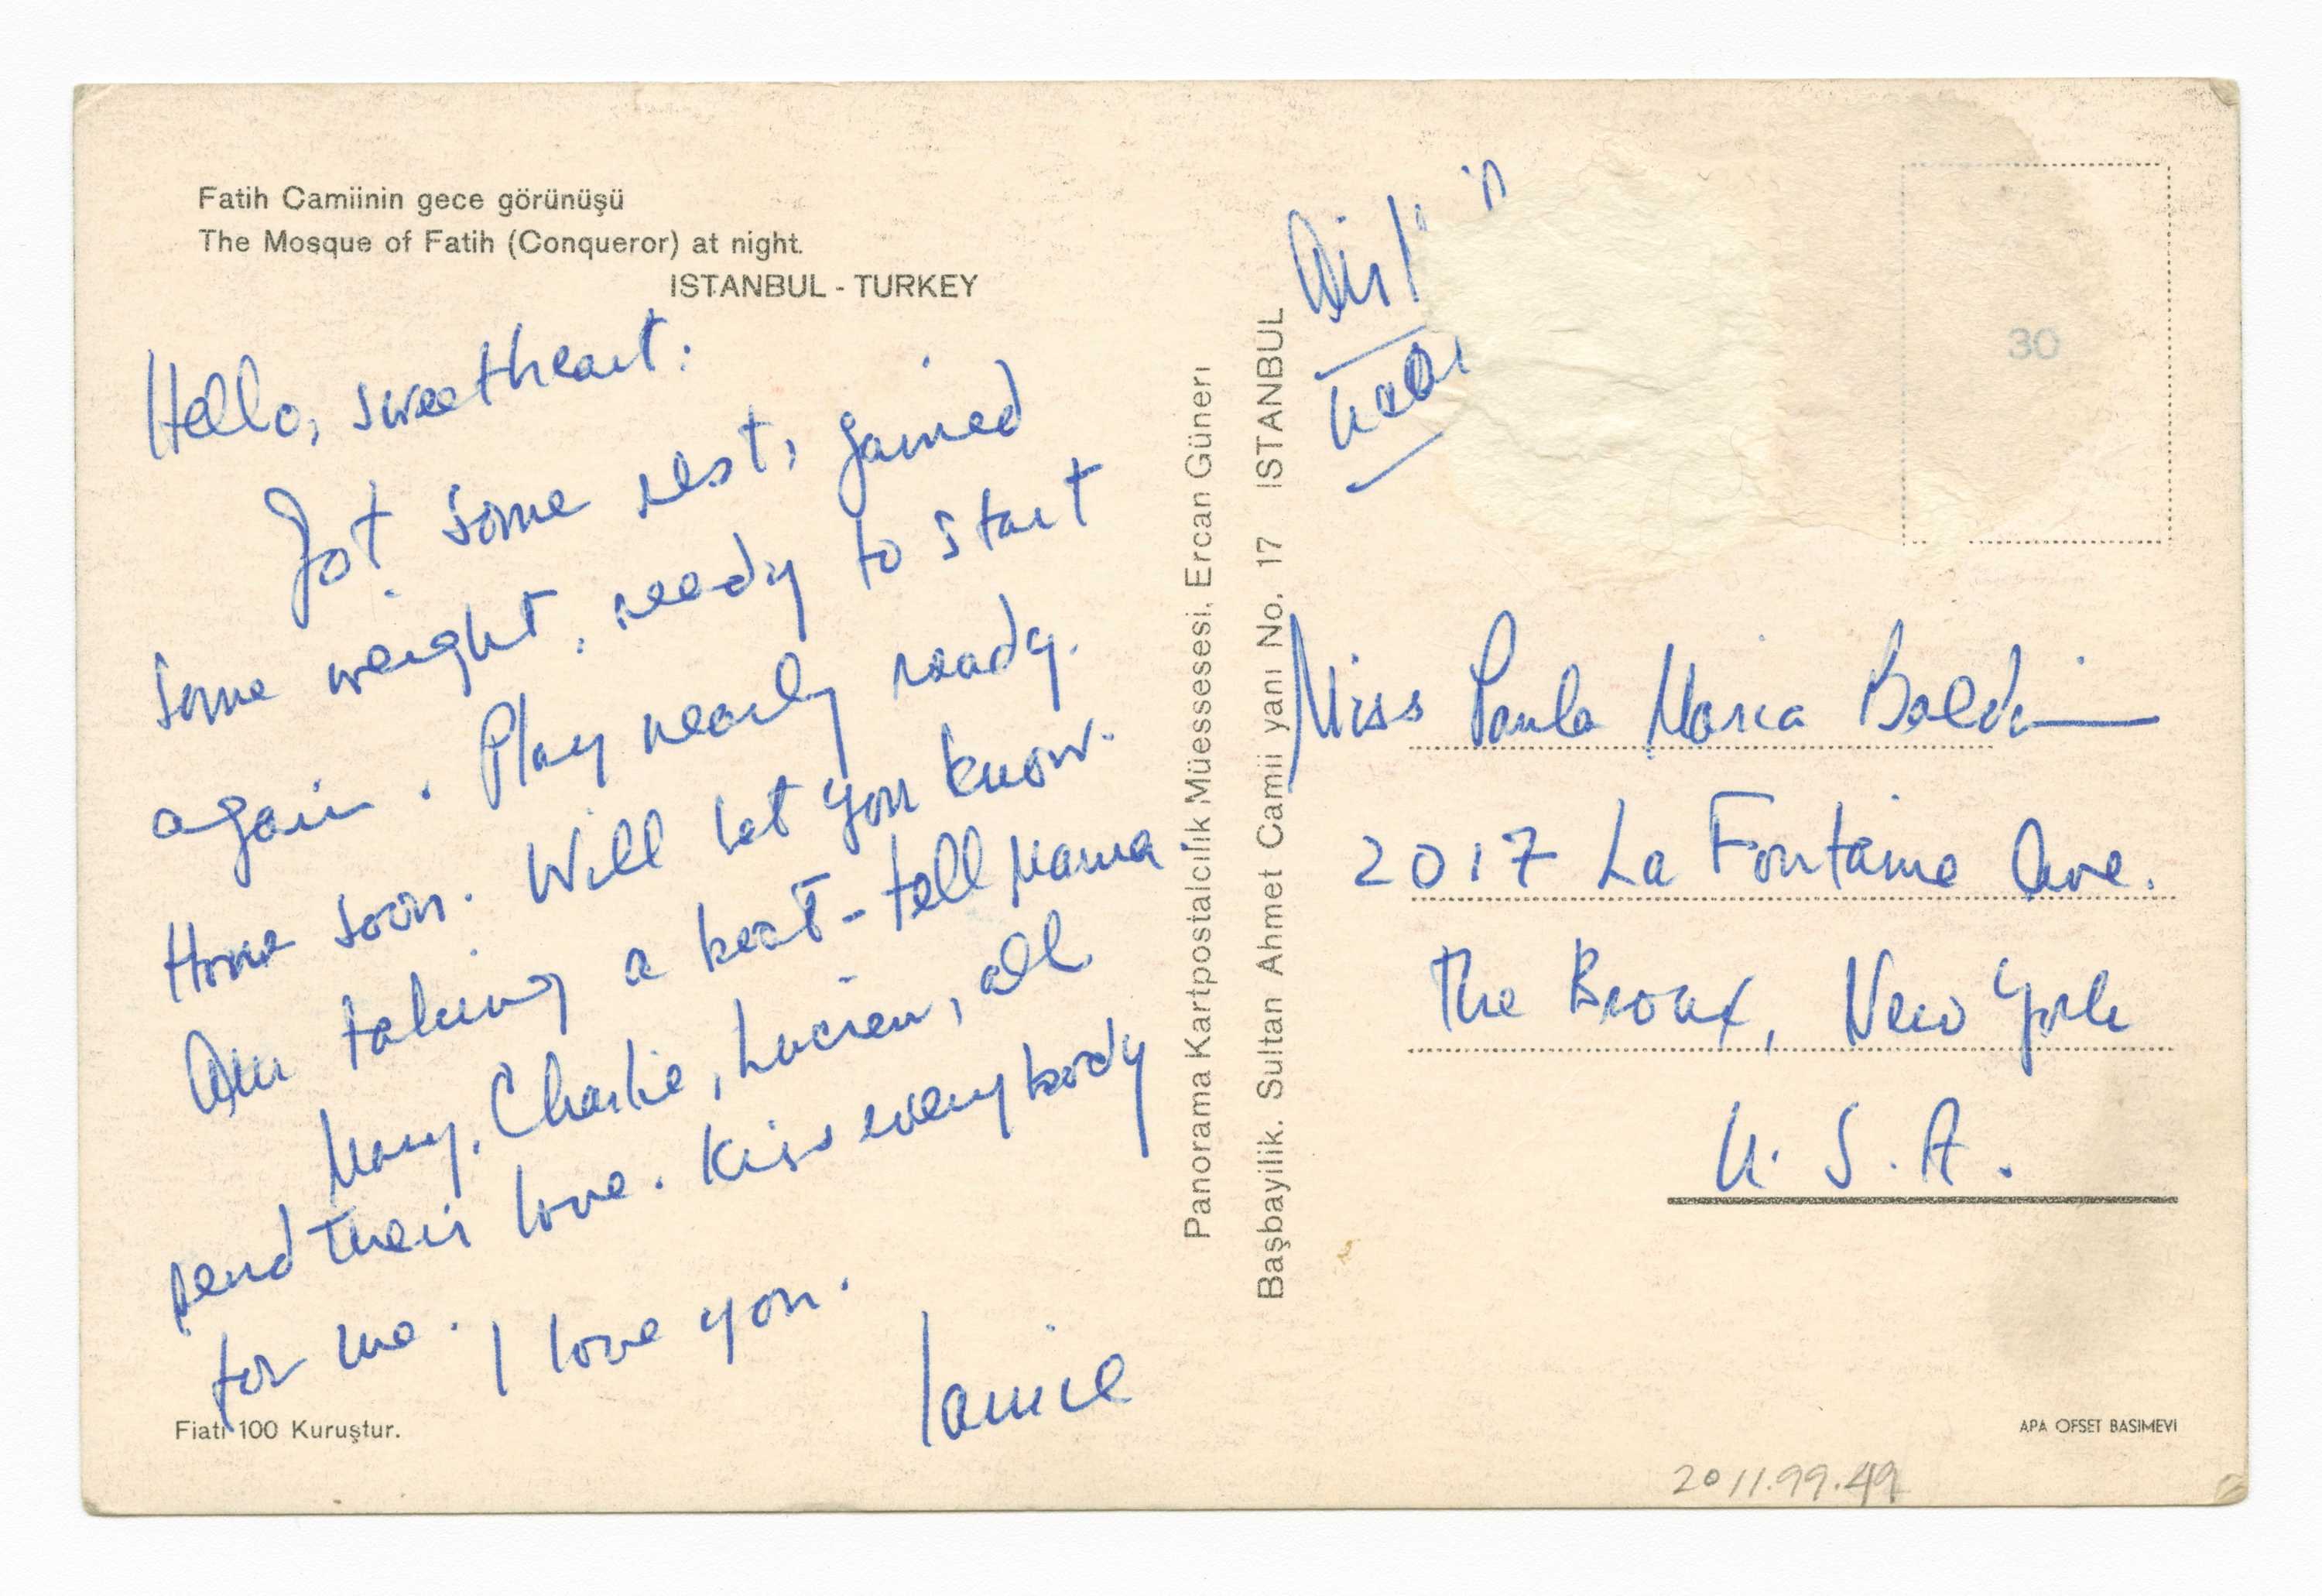 Fatih Camiinin gece görünüşü
The Mosque of Fatih (Conqueror) at night.
ISTANBUL - TURKEY
Hello, sweetheart:
Got some rest, gained
some weight, ready to start
again. Play nearly ready.
Home soon. Will let you know.
Am taking a boat - tell Mama.
Mary, Charlie, Lucien, all
send their love. Kiss everybody
for me. I love you.
Fiatı 100 Kuruştur.
Panorama Kartpostalcılık Müessesesi. Ercan Günerı
Başbayilik. Sultan Ahmet Camii yanı No. 17 ISTANBUL
Air
30
Miss Paula Maria Baldwin
2017 La Fontaine Ave.
The Bronx, New York
U. S. A.
APA OFSET BASIMEVI
2011.99.49